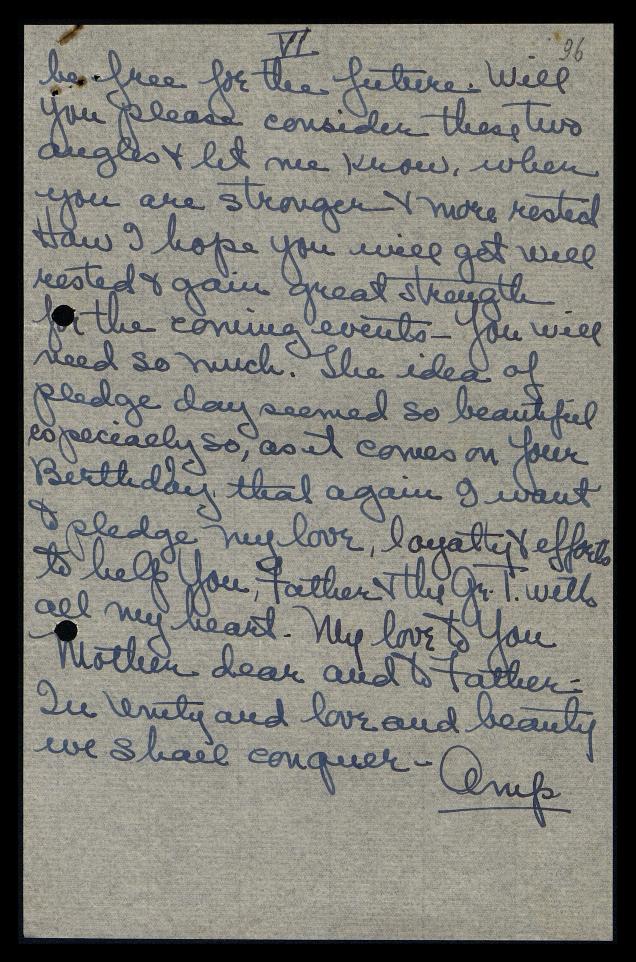 VI
96
be free for the future. Will
you please consider these two
angles & let me know, when
you are stronger & more rested
How I hope you will get well
rested & gain great strength
for the coming events – You will
need so much. The idea of
pledge day seemed so beautiful
especially so, as it comes on Your
Birthday, that again I want
to pledge my love, loyalty & efforts
to help You, Father & the Gr. T. with
all my heart. My love to You
Mother dear and to Father –
In Unity and love and beauty
we shall conquer –